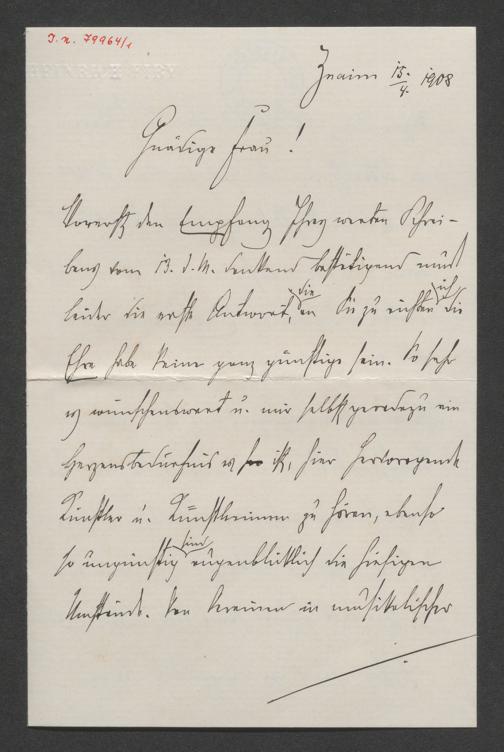 J.N. 79964/1
Znaim 15./4. 1908
Gnädige Frau!
Vorerst den Empfang Ihres werten Schrei-
bens vom 13. d. M. dankend bestätigend muß
leider die erste Antwort, die an Sie zu richten ich die
Ehre habe keine ganz günstige sein. So sehr
es wünschenswert u. mir selbst geradezu ein
Herzensbedürfnis es ist, hier hervorragende
Künstler u. Künstlerinnen zu hören, ebenso
so ungünstig sind augenblicklich die hiesigen
Umstände. Den Vereinen in musikalischer